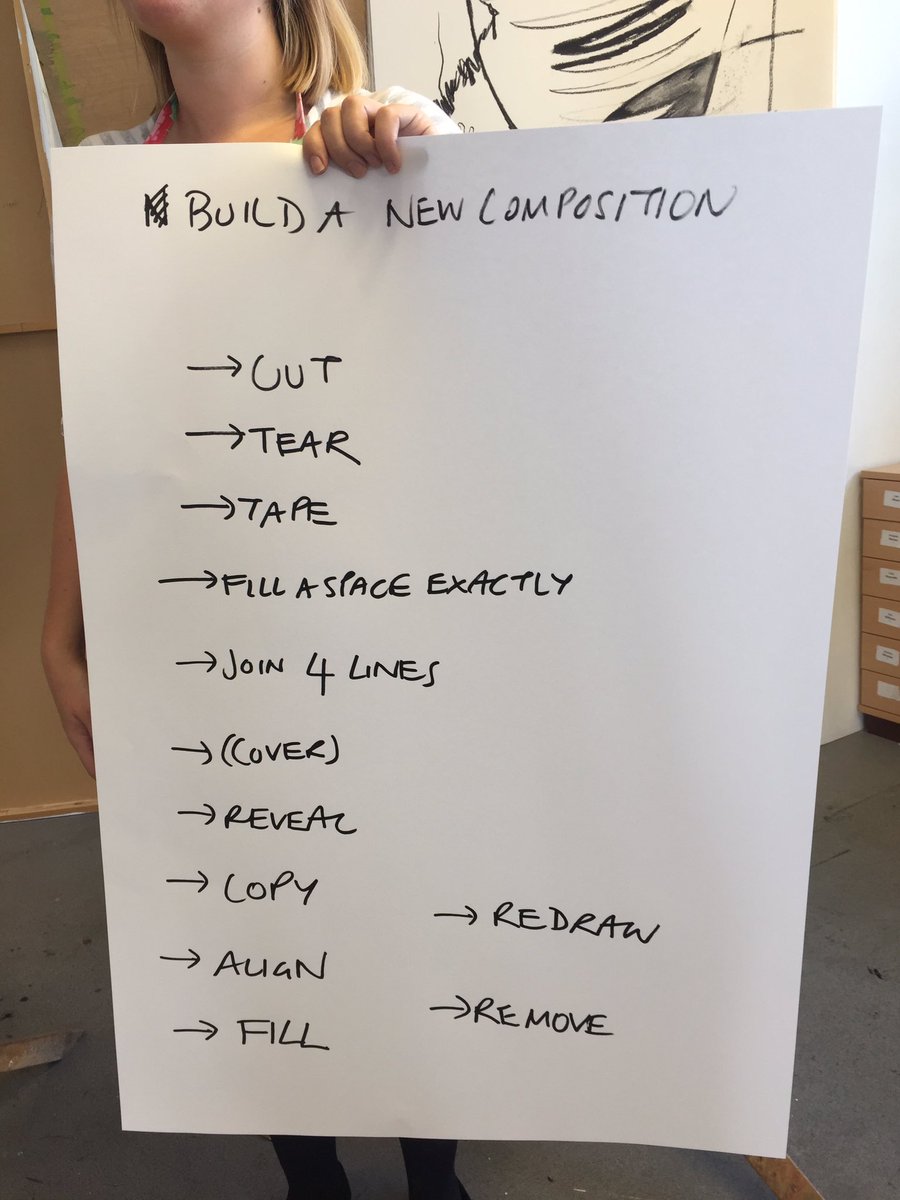 BUILD A NEW COMPOSITION
→ CUT
→ TEAR
→ TAPE
→ FILL A SPACE EXACTLY
→ JOIN 4 LINES
→ (COVER)
→ REVEAL
→ COPY
→ ALIGN
→ FILL
→ REDRAW
→ REMOVE